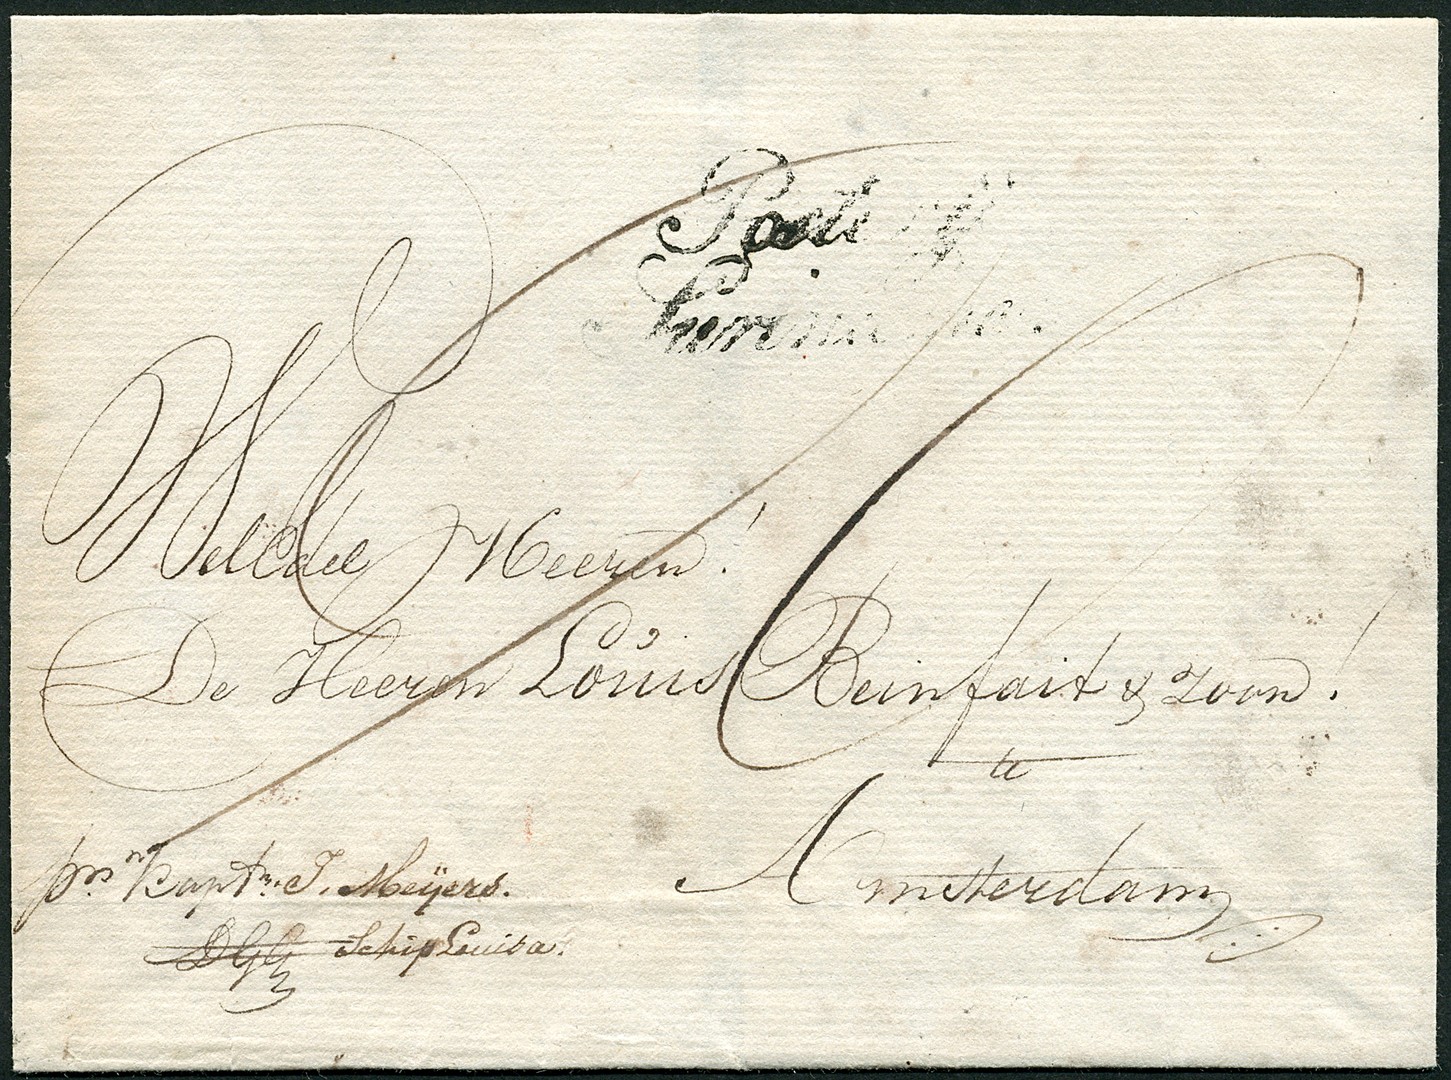 Post
Suriname
WelEdele Heeren!
De Heeren Louis Beinfait & Zoon!
te
Amsterdam
prs Kaptn. J. Meÿers.
DGG Schip Louisa.